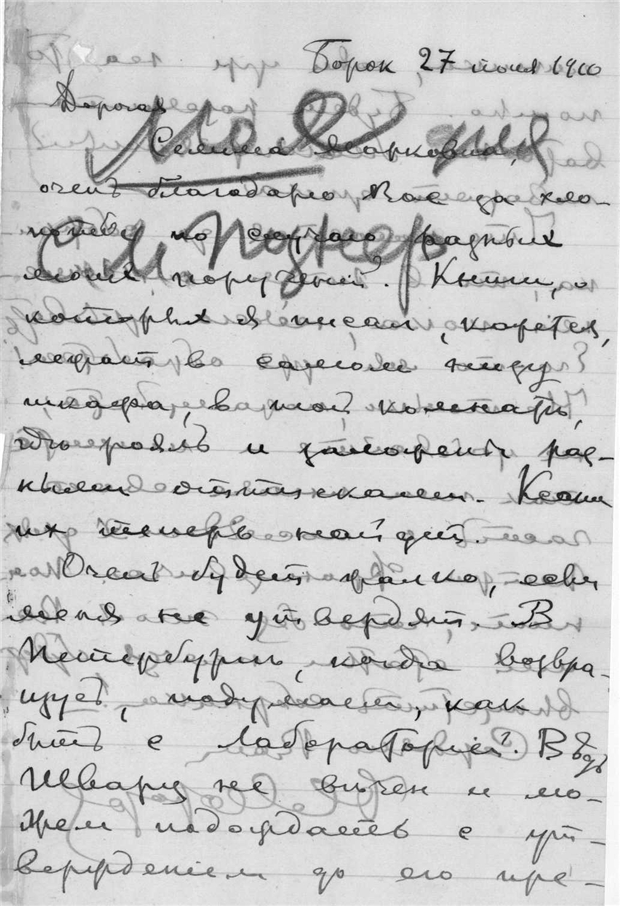 Борок 27 июня 1910
Дорогая
Селина Марковна,
очень благодарю Вас за хло-
поты по случаю разных
моих поручений. Книги, о
которых я писал, кажется,
лежат в самом низу
шкафа, в той комнате,
где рояль и заложены раз-
ными оттисками. Ксана
их теперь найдет.
Очень будет жалко, если
меня не утвердят. В
Петербурге, когда возвра-
щусь, подумаем, как
быть с Лабораторией. Вѣдь
Шварц не вечен и мо-
жем подождать с ут-
верждением до его пре-